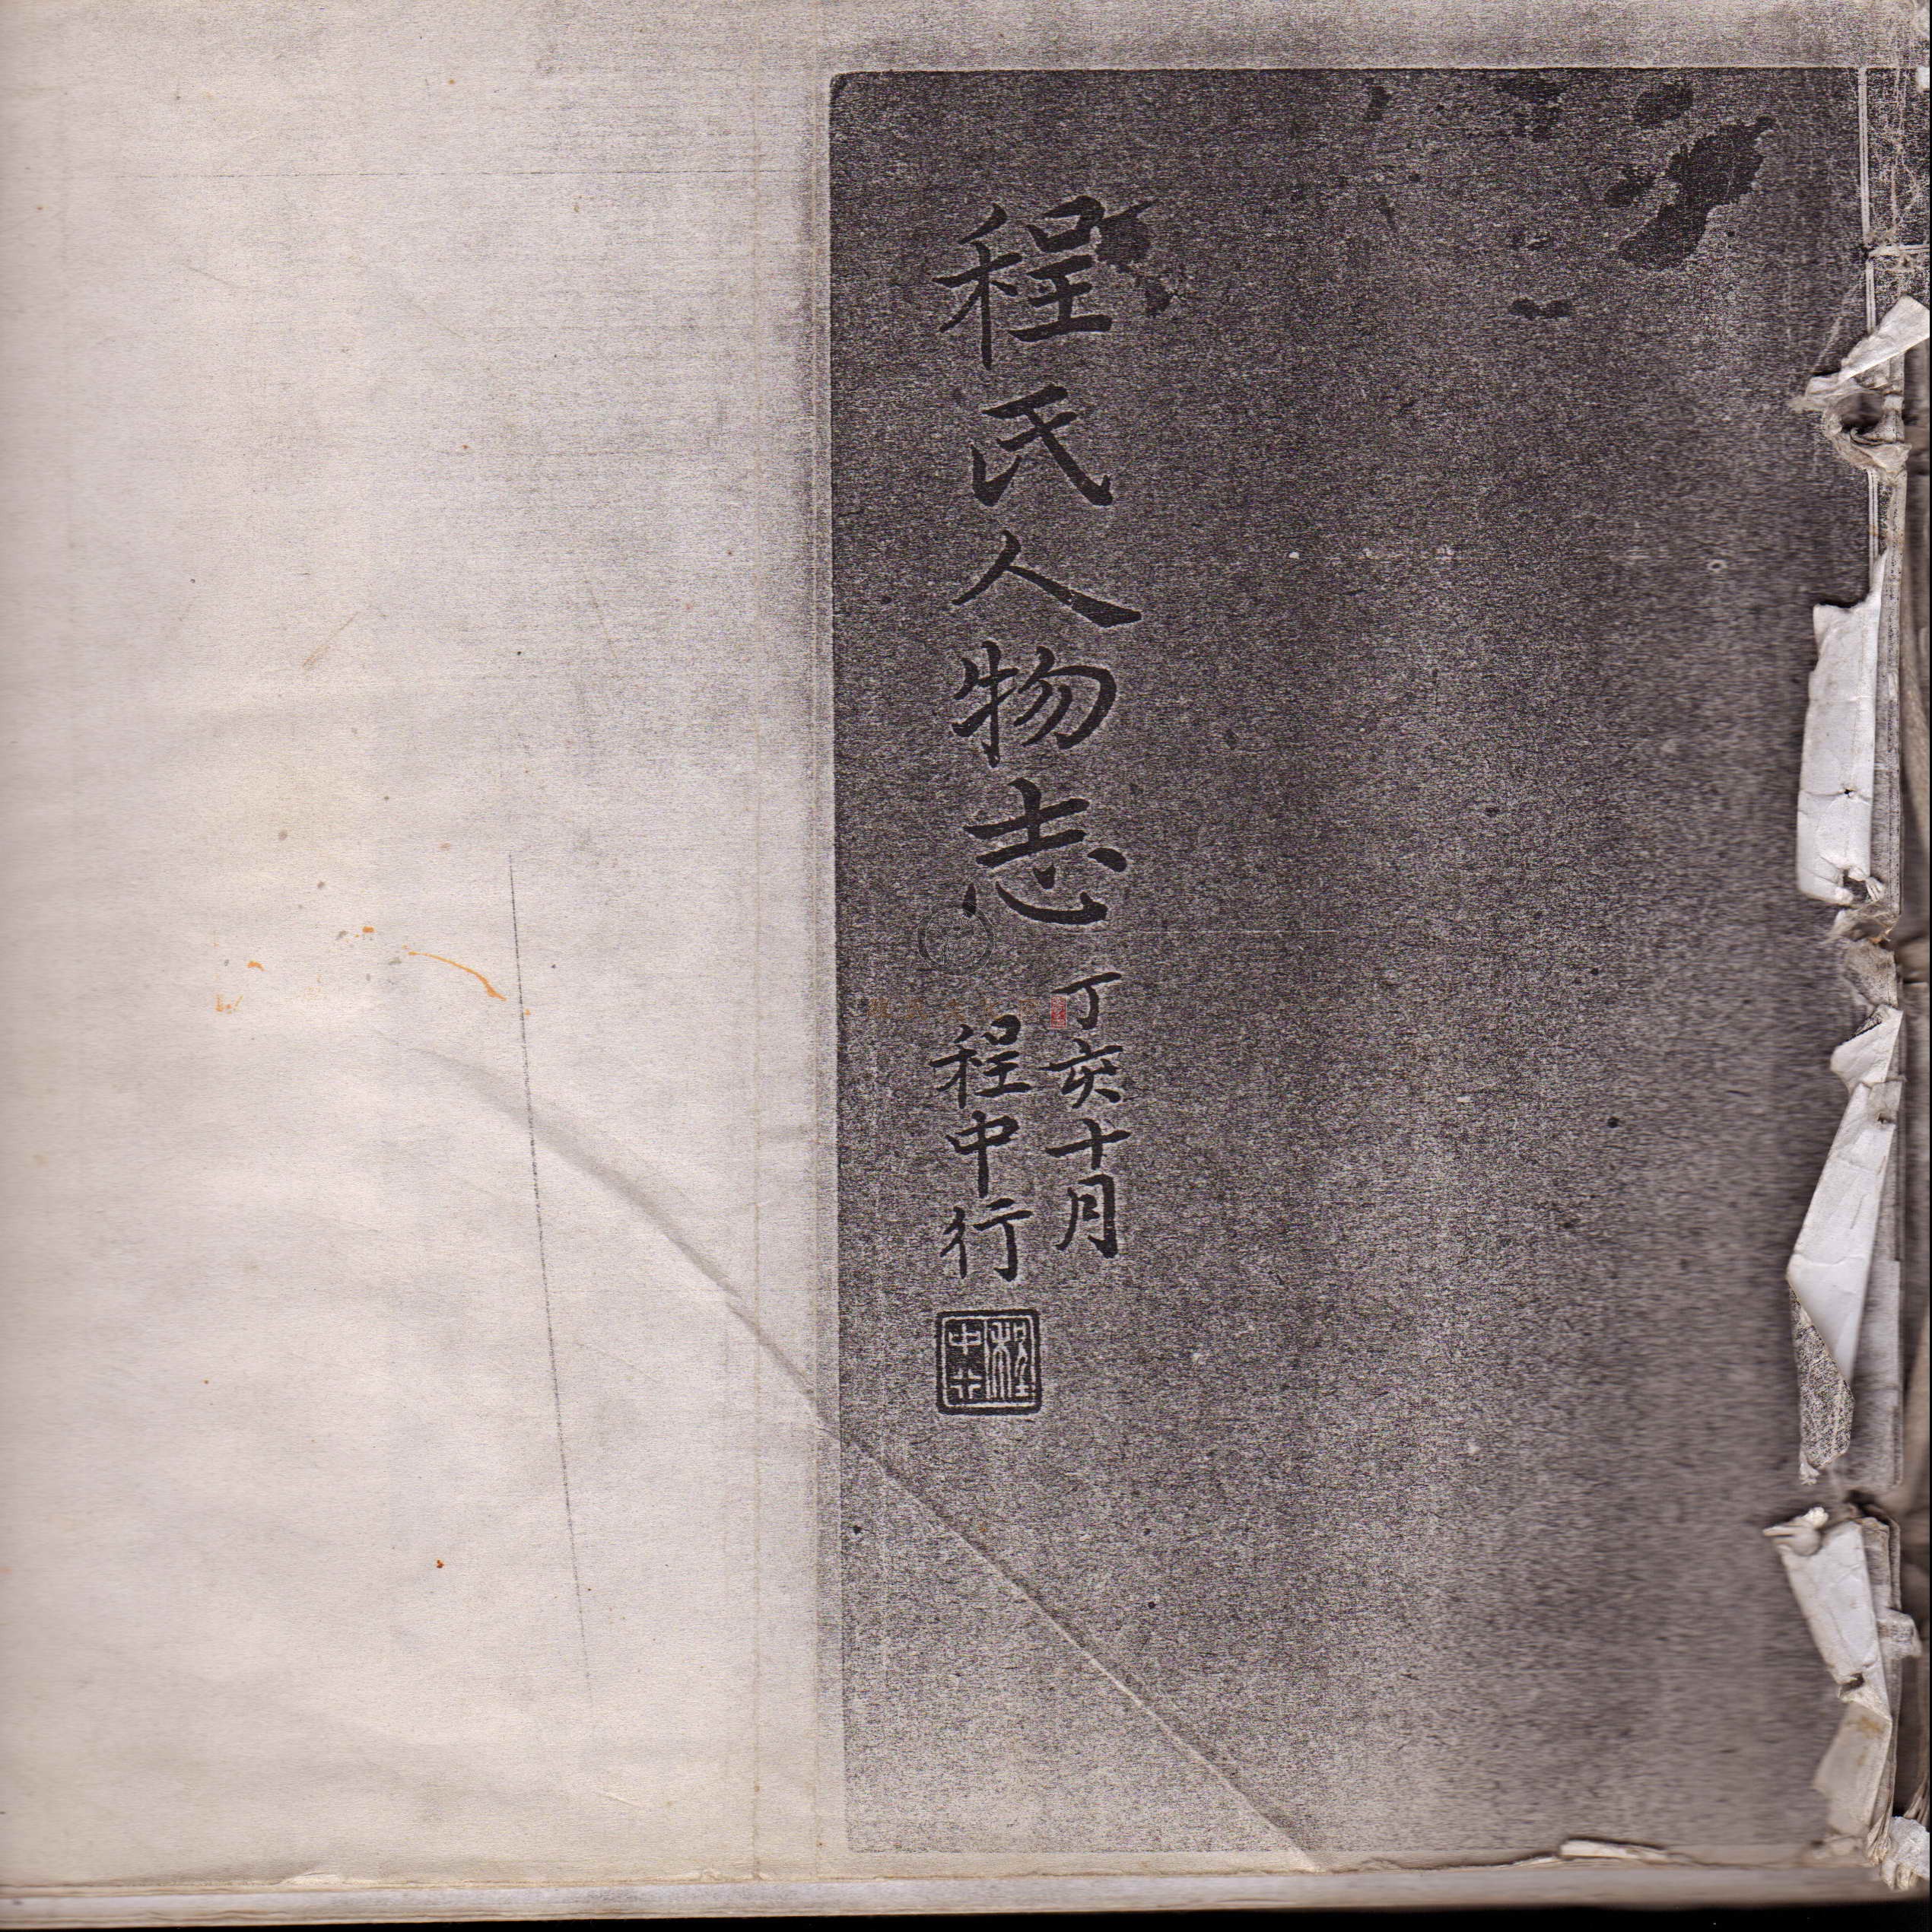 程氏人物志
丁亥十月
程中行
程中行